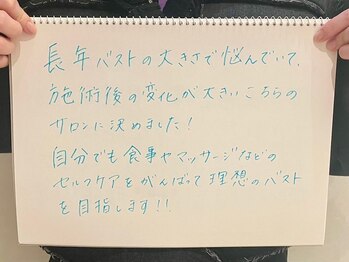 長年バストの大きさで悩んでいて、
施術後の変化が大きいこちらの
サロンに決めました！
自分でも食事やマッサージなどの
セルフケアをがんばって理想のバスト
を目指します！！